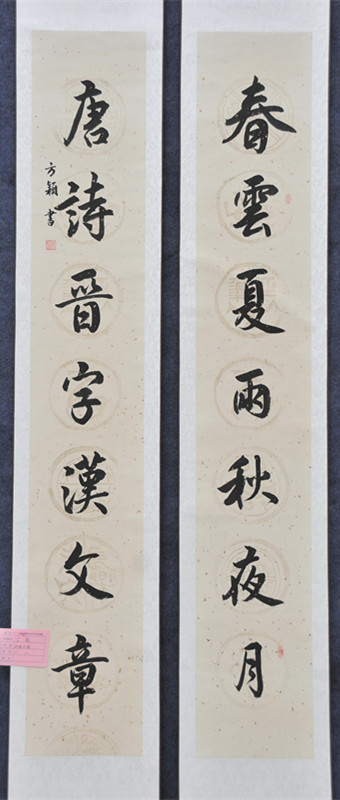 春雲夏雨秋夜月
唐詩晉字漢文章
方穎書